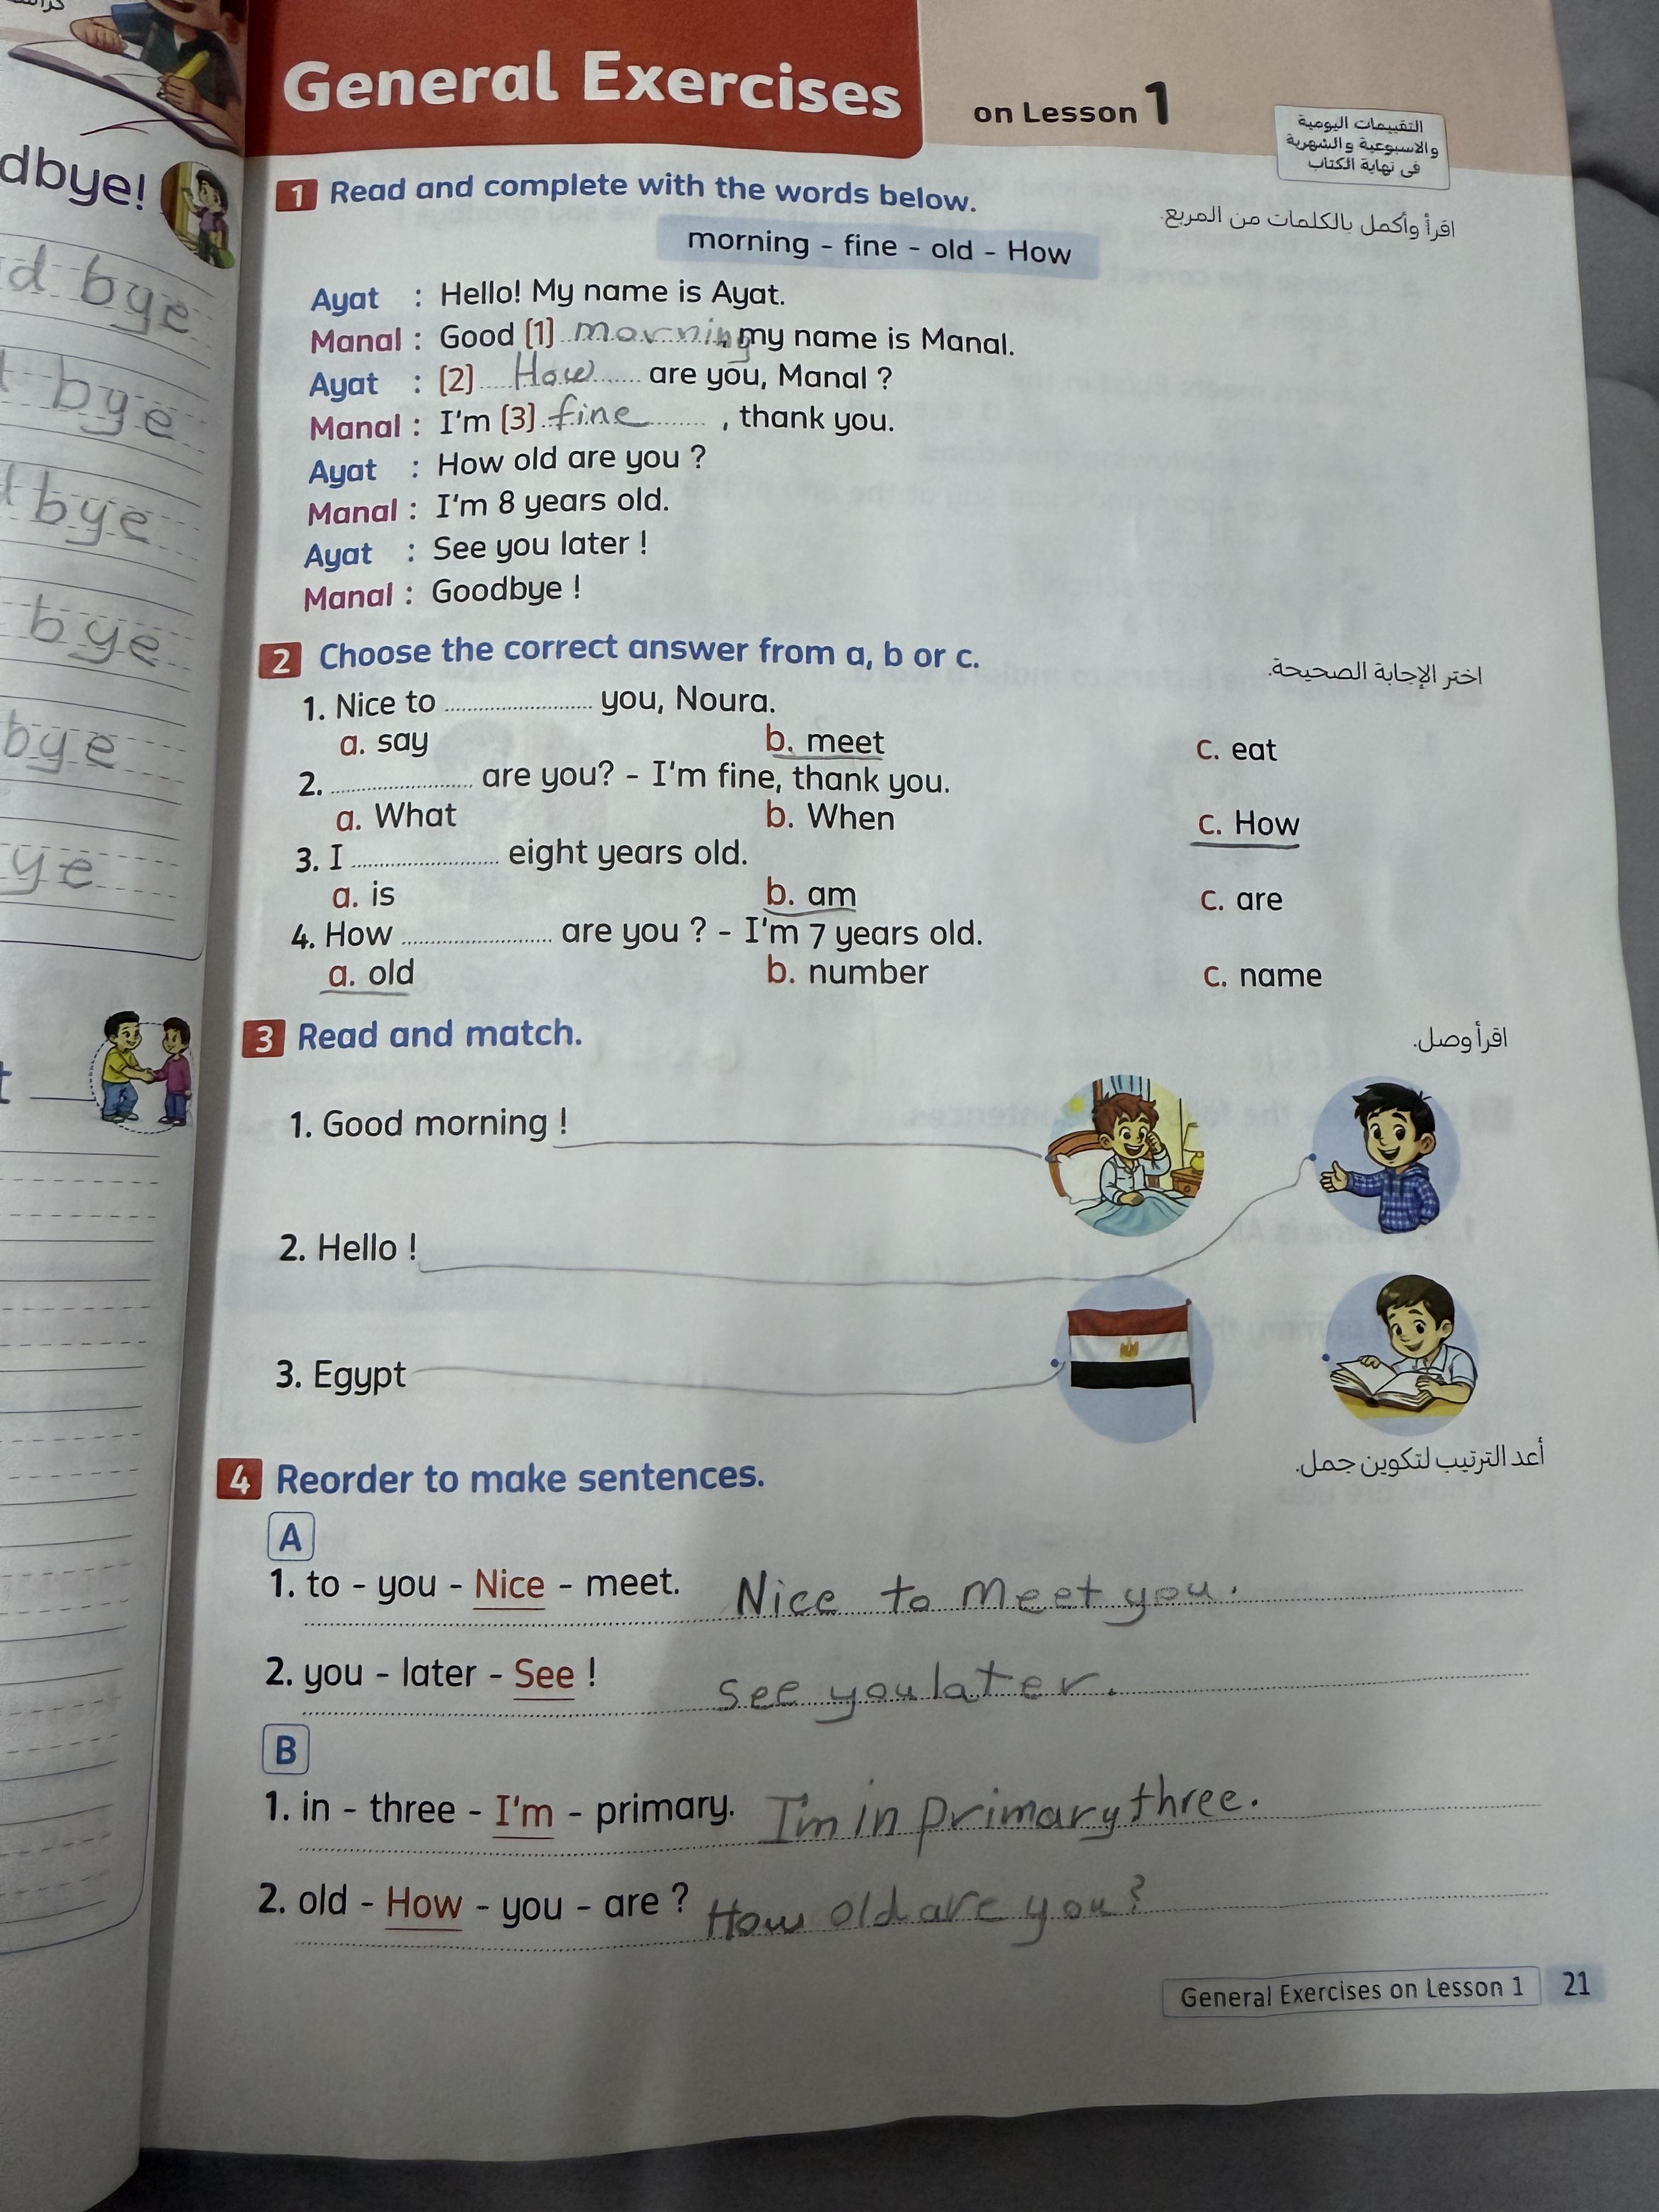 dbye!
d bye
bye
bye
bye
bye
ye
General Exercises
on Lesson 1
التقييمات اليومية
والاسبوعية والشهرية
فى نهاية الكتاب
1 Read and complete with the words below.
اقرأ وأكمل بالكلمات من المربع.
morning - fine - old - How
Ayat : Hello! My name is Ayat.
Manal : Good (1) morning, my name is Manal.
Ayat : (2) How are you, Manal ?
Manal : I'm (3) fine , thank you.
Ayat : How old are you ?
Manal : I'm 8 years old.
Ayat : See you later !
Manal : Goodbye !
2 Choose the correct answer from a, b or c.
اختر الإجابة الصحيحة.
1. Nice to ........................ you, Noura.
a. say b. meet c. eat
2. ........................ are you? - I'm fine, thank you.
a. What b. When c. How
3. I ........................ eight years old.
a. is b. am c. are
4. How ........................ are you ? - I'm 7 years old.
a. old b. number c. name
3 Read and match.
اقرأ وصل.
1. Good morning !
2. Hello !
3. Egypt
4 Reorder to make sentences.
أعد الترتيب لتكوين جمل.
A
1. to - you - Nice - meet. Nice to meet you.
2. you - later - See ! see you later.
B
1. in - three - I'm - primary. I'm in primary three.
2. old - How - you - are ? How old are you?
General Exercises on Lesson 1 21